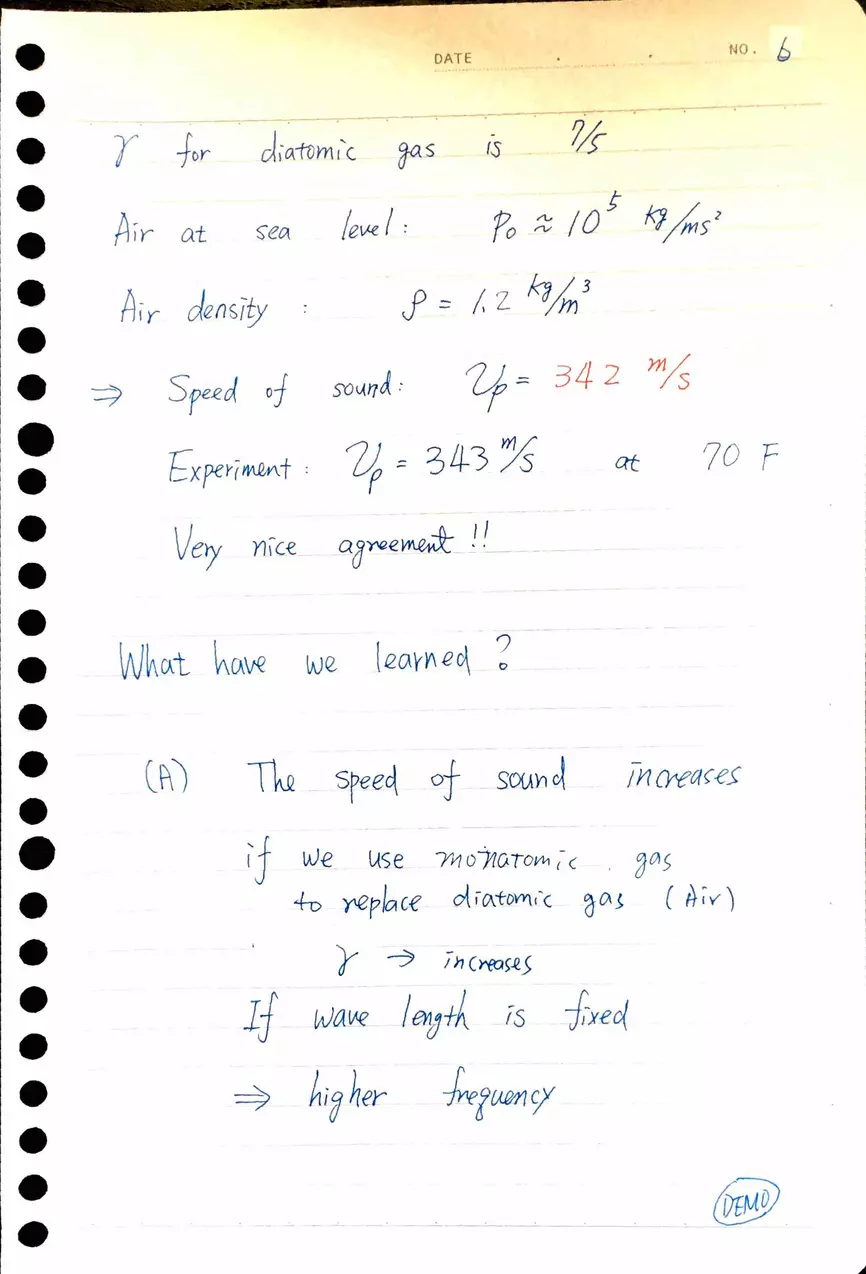 DATE . . NO. 6
γ for diatomic gas is 7/5
Air at sea level: P₀ ≈ 10⁵ kg/ms²
Air density : ρ = 1.2 kg/m³
⇒ Speed of sound: 𝒱p = 342 m/s
Experiment : 𝒱p = 343 m/s at 70 F
Very nice agreement !!
What have we learned ?
(A) The speed of sound increases
if we use monatomic gas
to replace diatomic gas (Air)
γ → increases
If wave length is fixed
⇒ higher frequency
DEMO